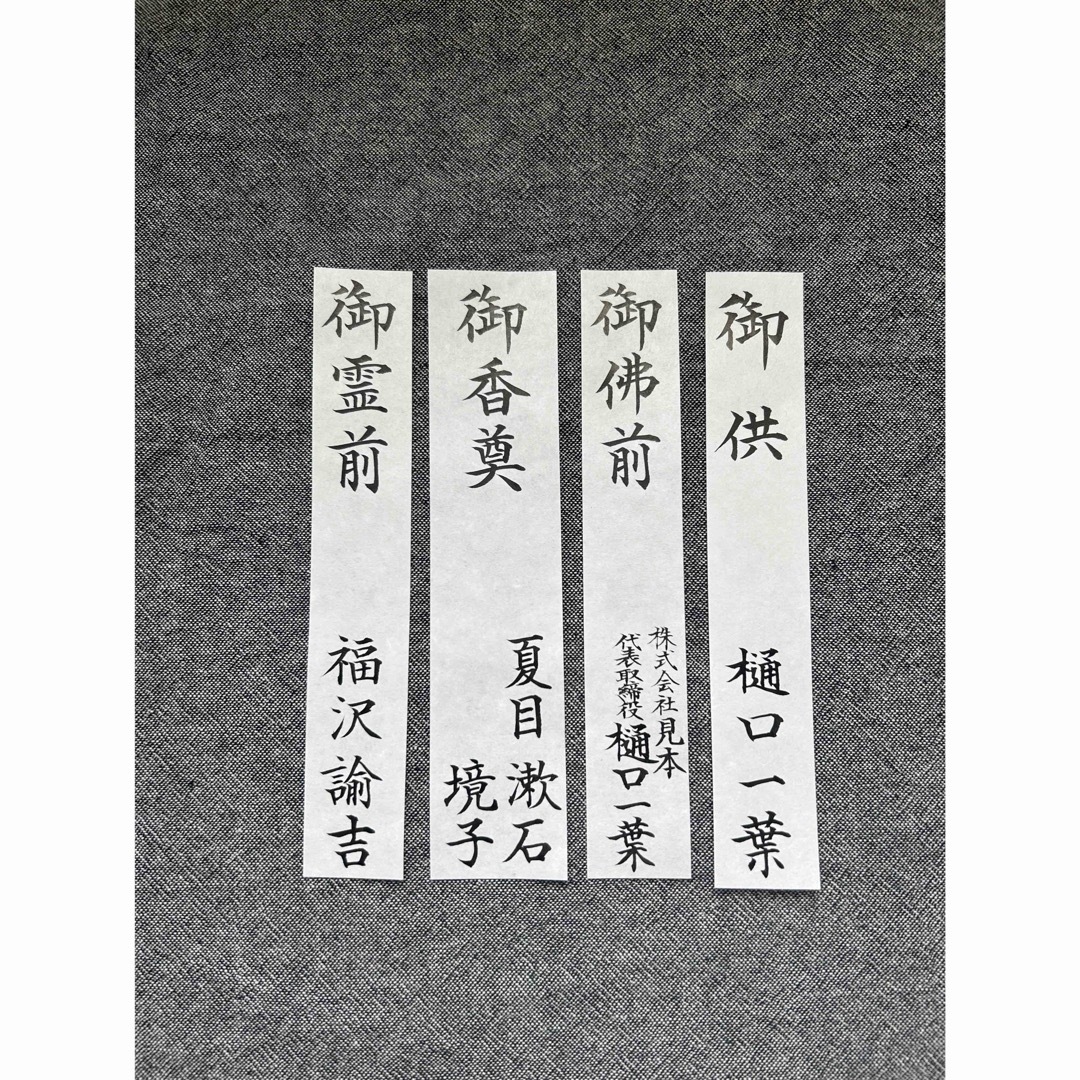 御霊前
福沢諭吉
御香奠
夏目漱石
境子
御佛前
株式会社見本
代表取締役樋口一葉
御供
樋口一葉